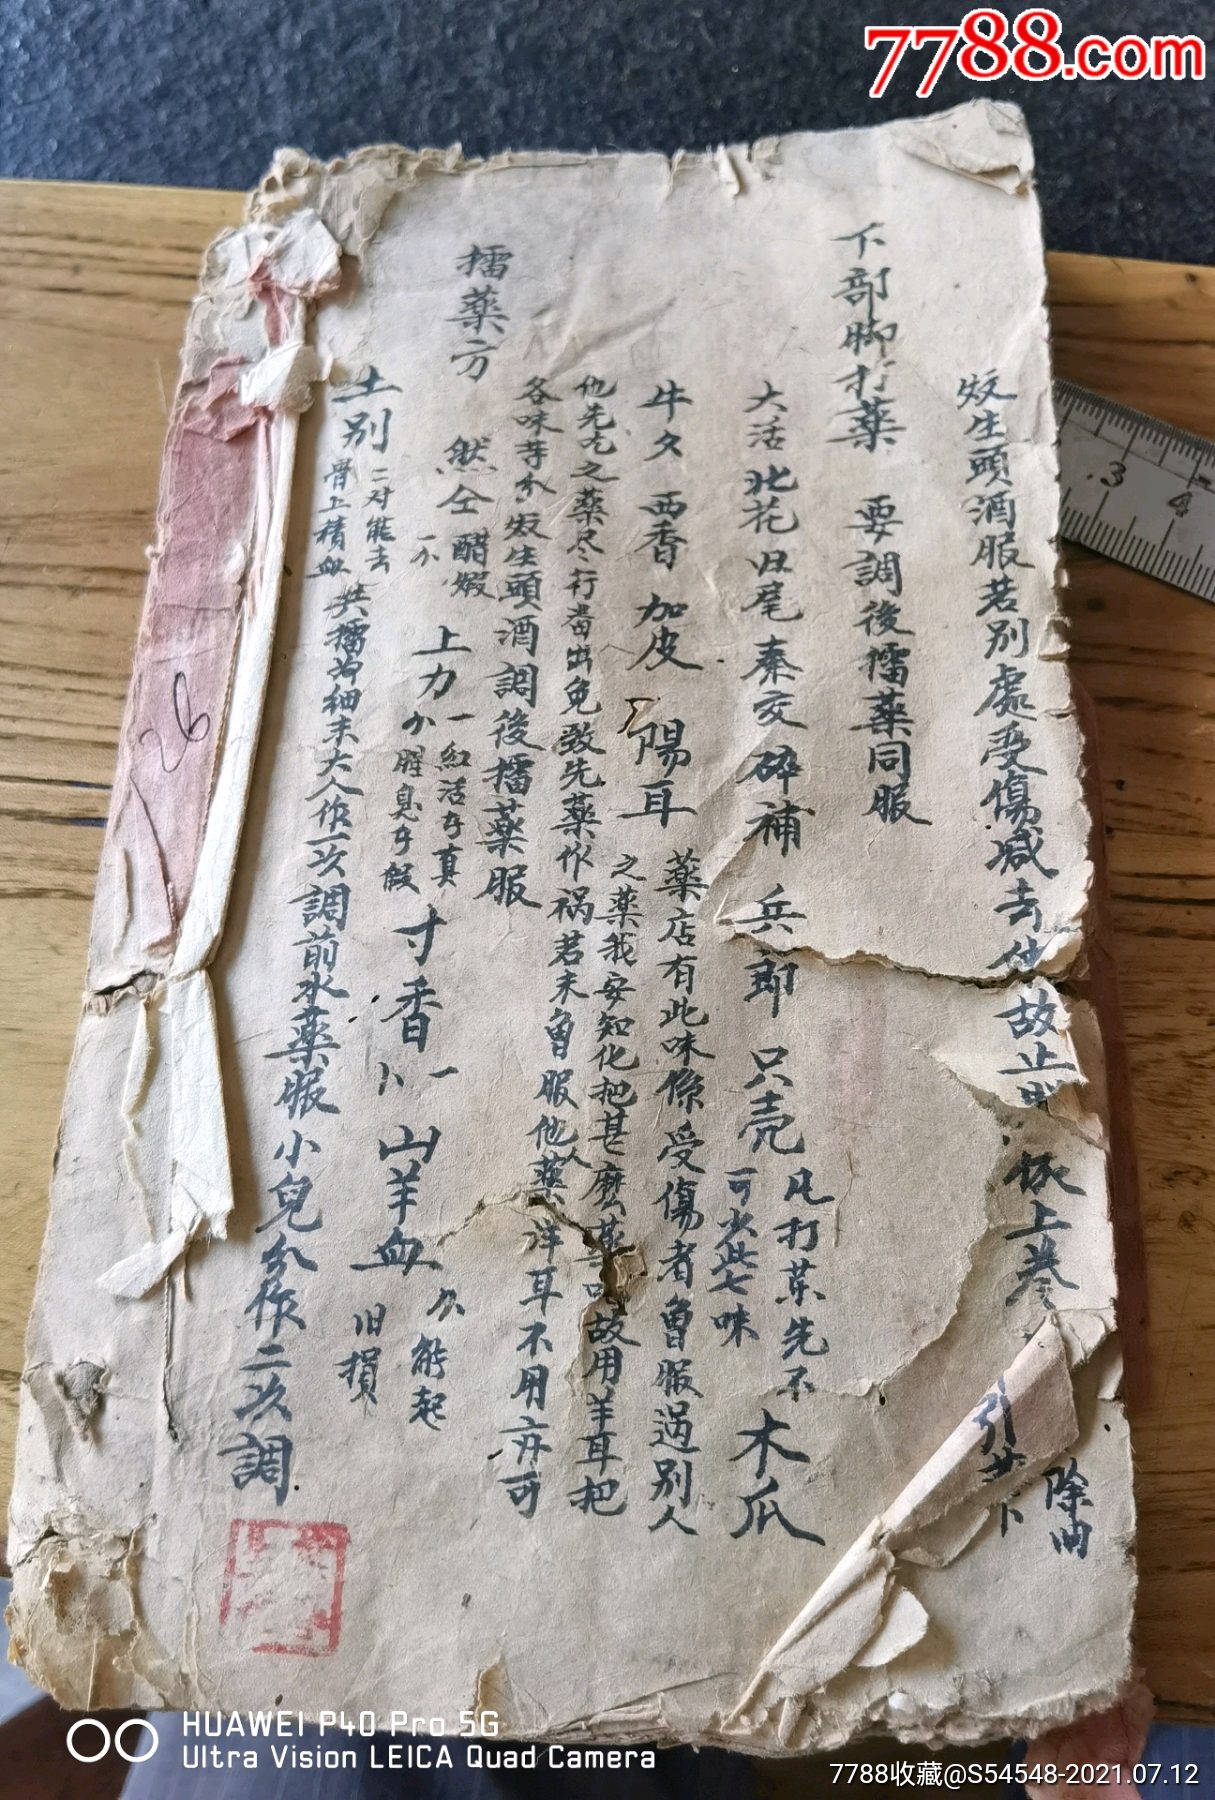 7788.com
炆生頭酒服若別處受傷减去 故止 依上卷
引 除曲
下部脚打薬 要調後擂薬同服
大活 北花 归尾 秦交 碎補 兵郎 只壳 凡打茶先不可少此七味 木瓜
牛夕 西香 加皮 陽耳 薬店有此味係受傷者曾服過別人
之薬我安知化把甚麽 故用羊耳把
他先乞之薬尽行番出免致先薬作祸若未曾服他人薬洋耳不用亦可
各味等分炆生頭酒調後擂薬服
擂薬方
然仝醋煅 上力 一紅活午真 寸香 山羊血 能起旧損
少腥息午假
土別 二对能去骨上積血 共擂為細末大人作一次調前水薬服小兒分作二次調
26
3 4
HUAWEI P40 Pro 5G
Ultra Vision LEICA Quad Camera
7788收藏@S54548-2021.07.12